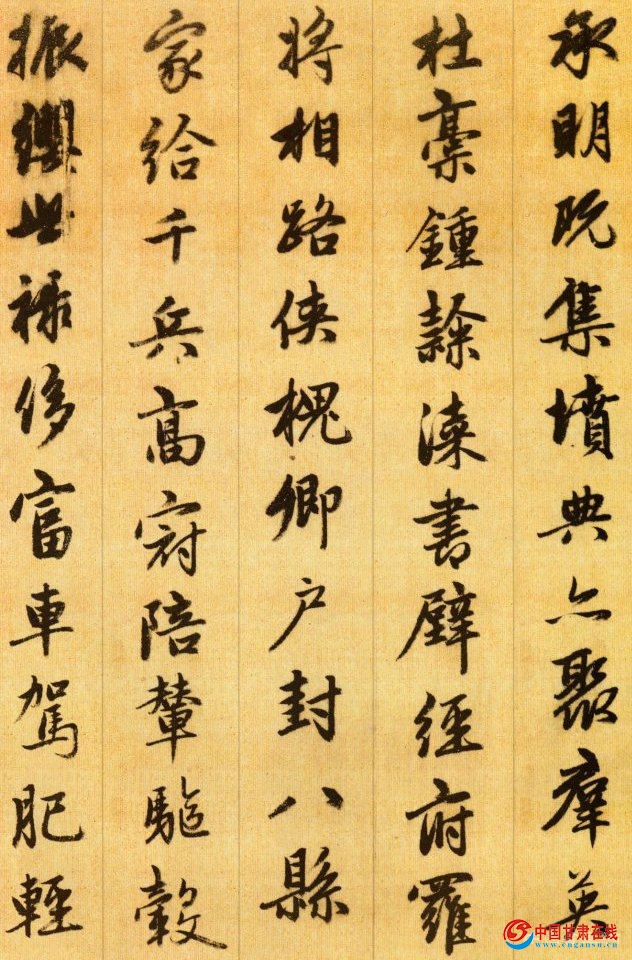 承明既集墳典亦聚羣英
杜稾鍾隸漆書壁經府羅
將相路俠槐卿户封八縣
家給千兵高冠陪輦驅轂
振纓世禄侈富車駕肥輕
中国甘肃在线
www.cngansu.cn